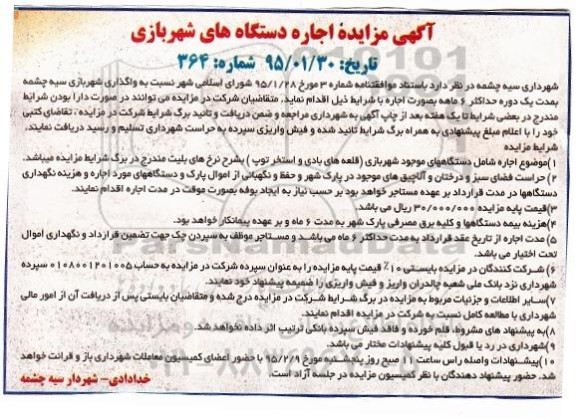 آگهی مزایدۀ اجاره دستگاه های شهربازی
تاریخ: ۹۵/۰۱/۳۰ شماره: ۳۶۴
شهرداری سیه چشمه در نظر دارد باستناد موافقتنامه شماره ۳ مورخ ۹۵/۱/۲۸ شورای اسلامی شهر نسبت به واگذاری شهربازی سیه چشمه
بمدت یک دوره حداکثر ۶ ماهه بصورت اجاره با شرایط ذیل اقدام نماید. متقاضیان شرکت در مزایده می توانند در صورت دارا بودن شرایط
مندرج در بعضی شرایط تا یک هفته بعد از چاپ آگهی به شهرداری مراجعه و ضمن دریافت و تائید برگ شرایط شرکت در مزایده، تقاضای کتبی
خود را با اعلام مبلغ پیشنهادی به همراه برگ شرایط تائید شده و فیش واریزی سپرده به حراست شهرداری تسلیم و رسید دریافت نمایند.
شرایط مزایده
۱)موضوع اجاره شامل دستگاههای موجود شهربازی (قلعه های بادی و استخر توپ ) بشرح نرخ های بلیت مندرج در برگ شرایط مزایده میباشد.
۲) حراست فضای سبز و درختان و آلاچیق های موجود در پارک شهر و حفظ و نگهبانی از اموال پارک و دستگاههای مورد اجاره و هزینه نگهداری
دستگاهها در مدت قرارداد بر عهده مستاجر خواهد بود بر حسب نیاز به ایجاد بوفه بصورت موقت در مدت اجاره اقدام نمایند.
۳)قیمت پایه مزایده ۳۰/۰۰۰/۰۰۰ ریال می باشد.
۴)هزینه بیمه دستگاهها و کلیه برق مصرفی پارک شهر به مدت ۶ ماه و بر عهده پیمانکار خواهد بود.
۵) مدت اجاره از تاریخ عقد قرارداد به مدت حداکثر ۶ ماه می باشد و مستاجر موظف به سپردن چک جهت تضمین قرارداد و نگهداری اموال
تحت اختیار می باشد.
۶) شرکت کنندگان در مزایده بایستی ۱۰٪ قیمت پایه مزایده را به عنوان سپرده شرکت در مزایده به حساب ۰۱۰۸۰۰۱۲۰۱۰۰۵ سپرده
شهرداری نزد بانک ملی شعبه چالدران واریز و فیش واریزی را ضمیمه پیشنهاد خود نمایند.
۷)سایر اطلاعات و جزئیات مربوط به مزایده در برگ شرایط شرکت در مزایده درج شده و متقاضیان بایستی پس از دریافت آن از امور مالی
شهرداری با مطالعه کامل نسبت به شرکت در مزایده اقدام نمایند.
۸)به پیشنهاد های مشروط، قلم خورده و فاقد فیش سپرده بانکی ترتیب اثر داده نخواهد شد.
۹)شهرداری در رد یا قبول کلیه پیشنهادات مختار می باشد.
۱۰)پیشنهادات واصله راس ساعت ۱۱ صبح روز پنجشنبه مورخ ۹۵/۲/۹ با حضور اعضای کمیسیون معاملات شهرداری باز و قرائت خواهد
شد. حضور پیشنهاد دهندگان با نظر کمیسیون مزایده در جلسه آزاد است.
خدادادی- شهردار سیه چشمه
ParsNamadData